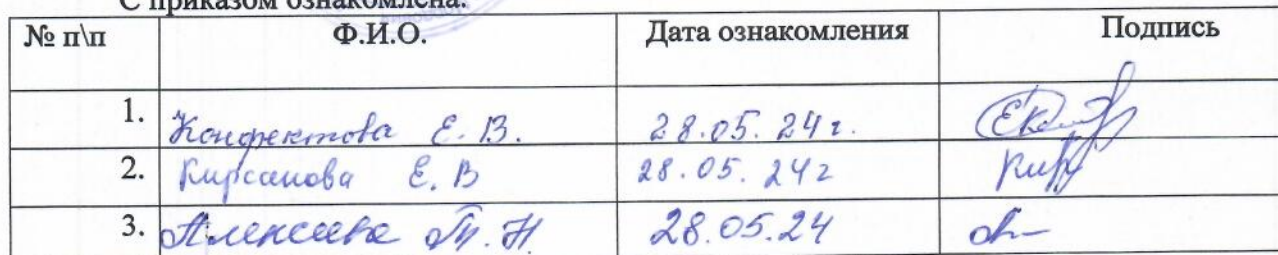 С приказом ознакомлена:
№ п\п Ф.И.О. Дата ознакомления Подпись
1. Конфектова Е.В. 28.05.24г.
2. Кирсанова Е.В 28.05.24г
3. Алексеева Т.Н. 28.05.24